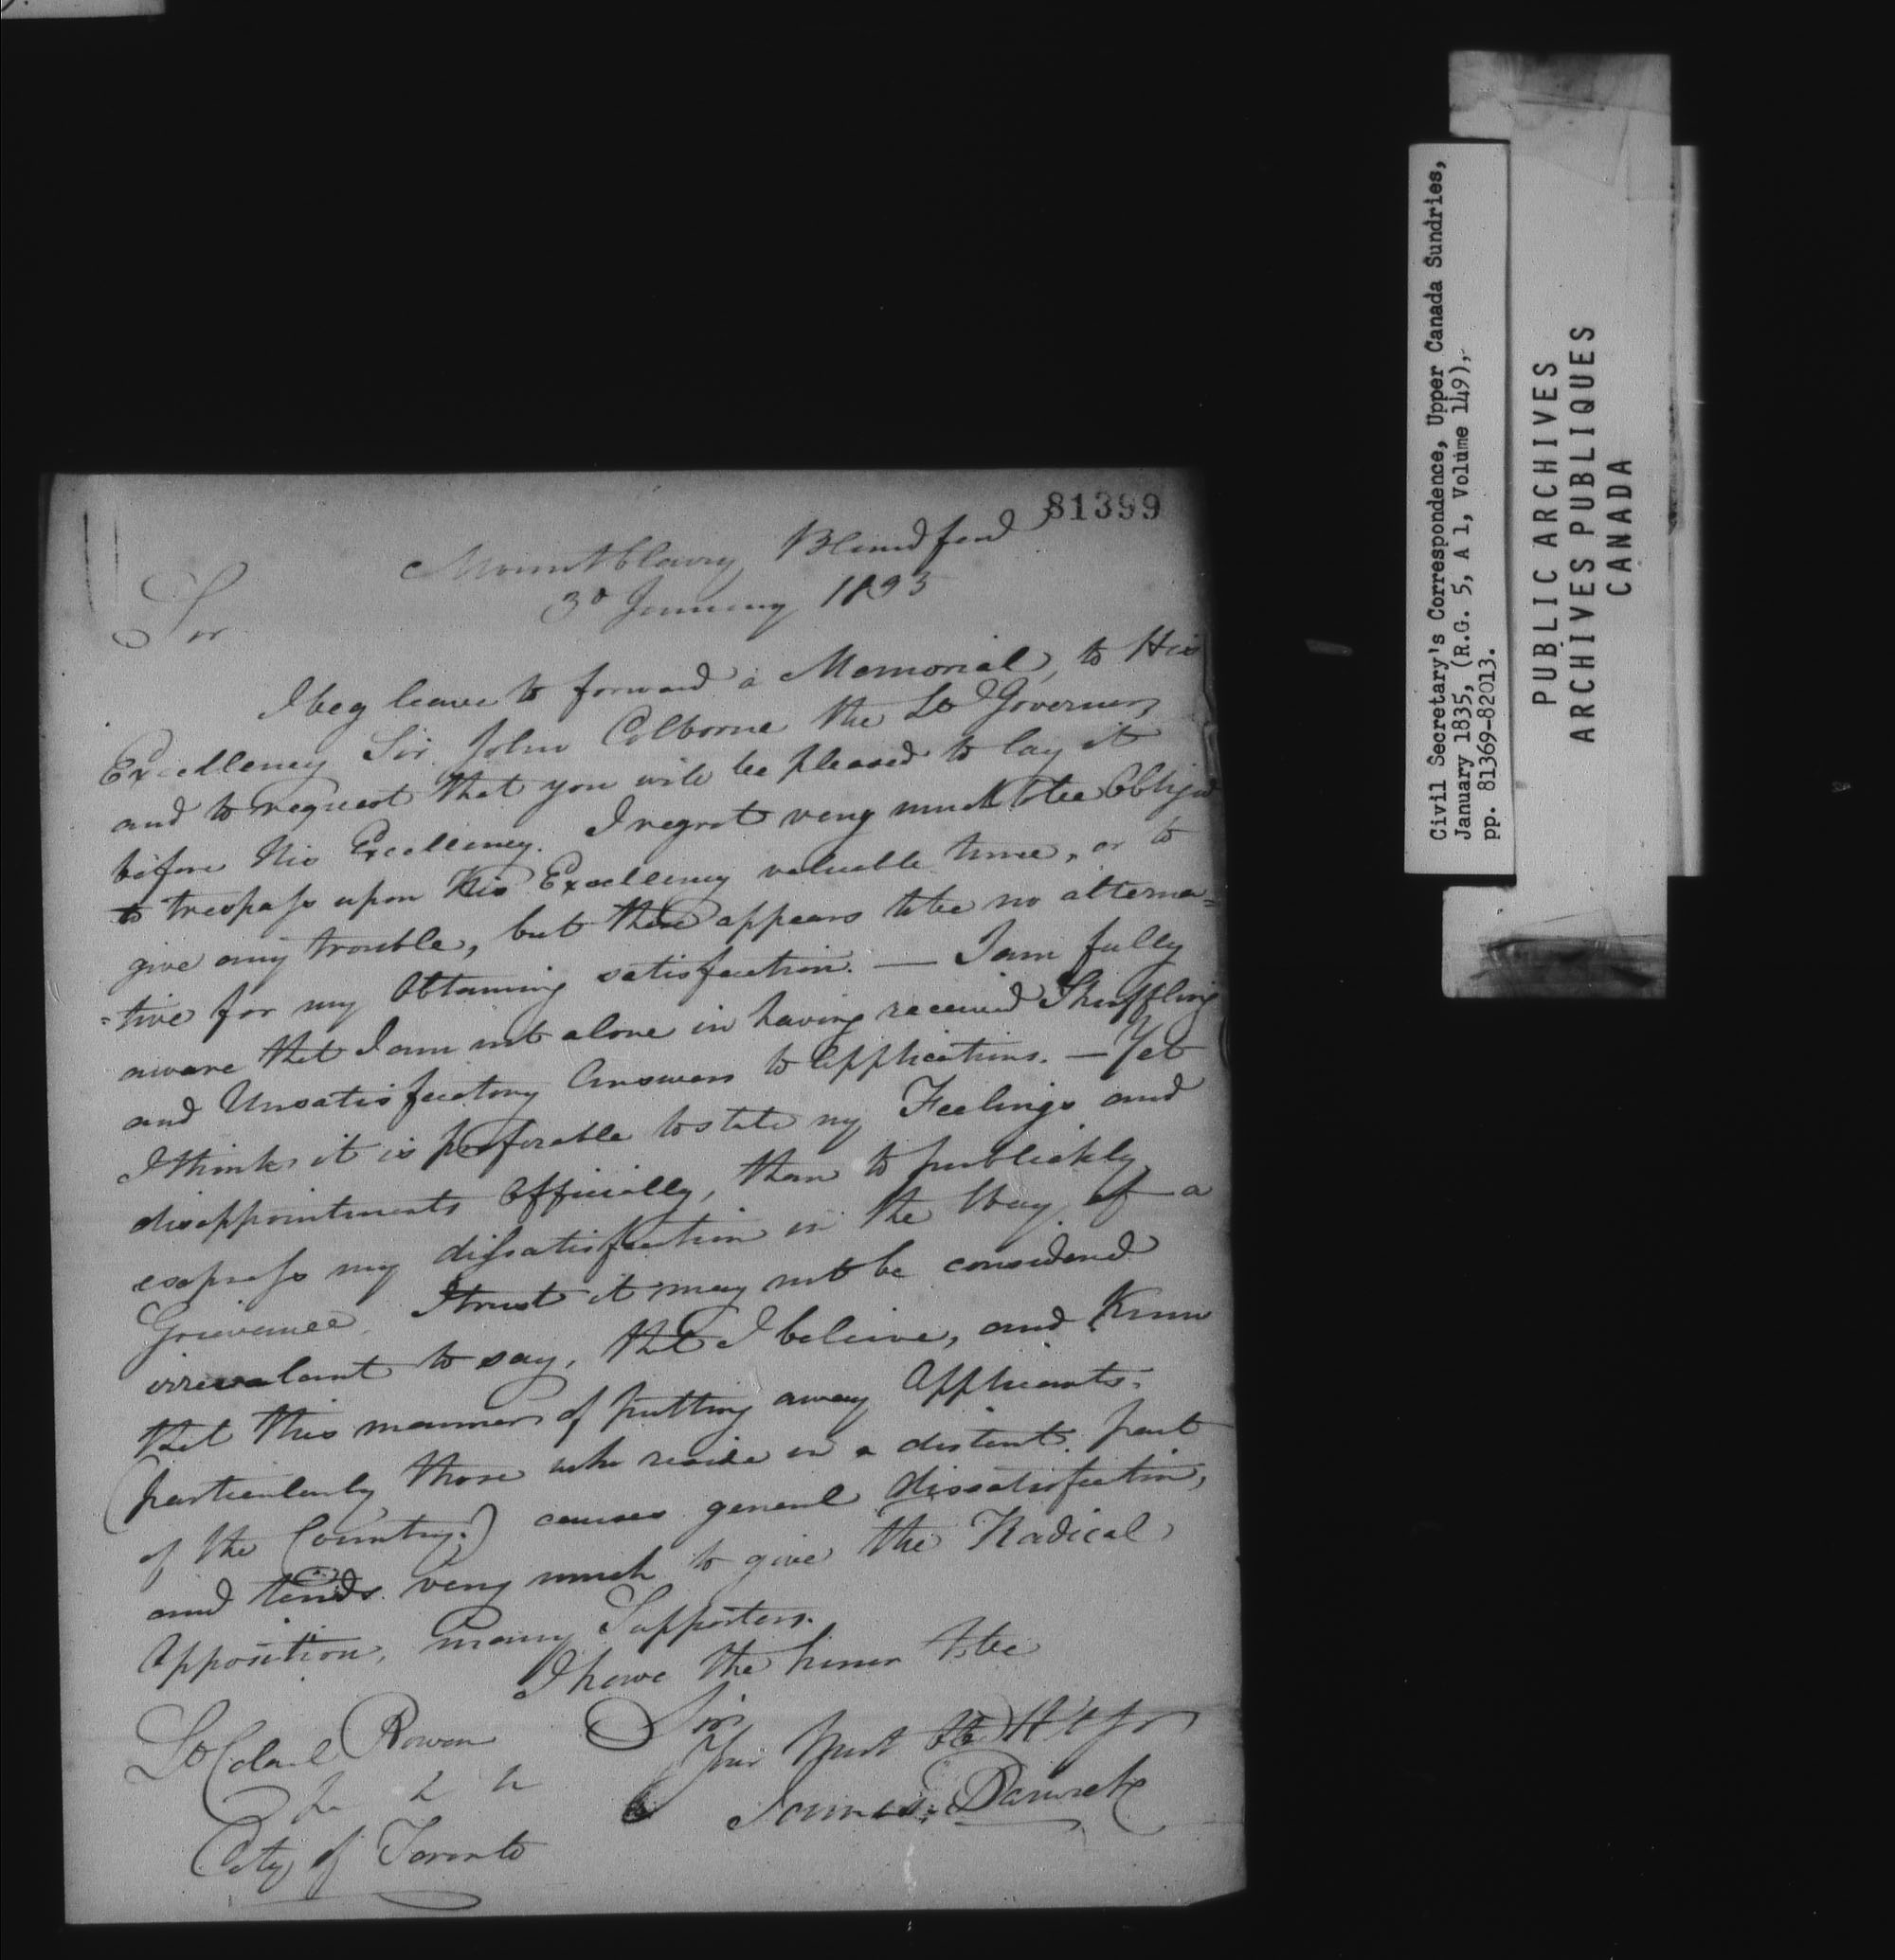 81399
Blandford
3d January 1835
Sir
I beg leave to forward a Memorial, to His
Excellency Sir John Colborne the Lt Governor,
and to request that you will be pleased to lay it
before His Excellency. I regret very much to be Obliged
to trespass upon His Excellency valuable time, or to
give any trouble, but there appears to be no alterna=
=tive for my Obtaining satisfaction. — I am fully
aware that I am not alone in having received Shuffling
and Unsatisfactory Answers to Applications. — Yet
I think it is preferable to state my Feelings and
disappointments Officially, than to publickly
express my dissatisfaction in the Way of a
Grievance. I trust it may not be considered
irrevalant to say, that I believe, and Know
that this manner of putting away Applicants.
(particularly those who reside in a distant part
of the Country.) causes general dissatisfaction,
and tends very much to give the Radical
Opposition, many Supporters.
I have the honor to be
Sir
Your Most
Lt Colonel Rowan
James
City of Toronto
Civil Secretary's Correspondence, Upper Canada Sundries,
January 1835, (R.G. 5, A 1, Volume 149),
pp. 81369-82013.
PUBLIC ARCHIVES
ARCHIVES PUBLIQUES
CANADA